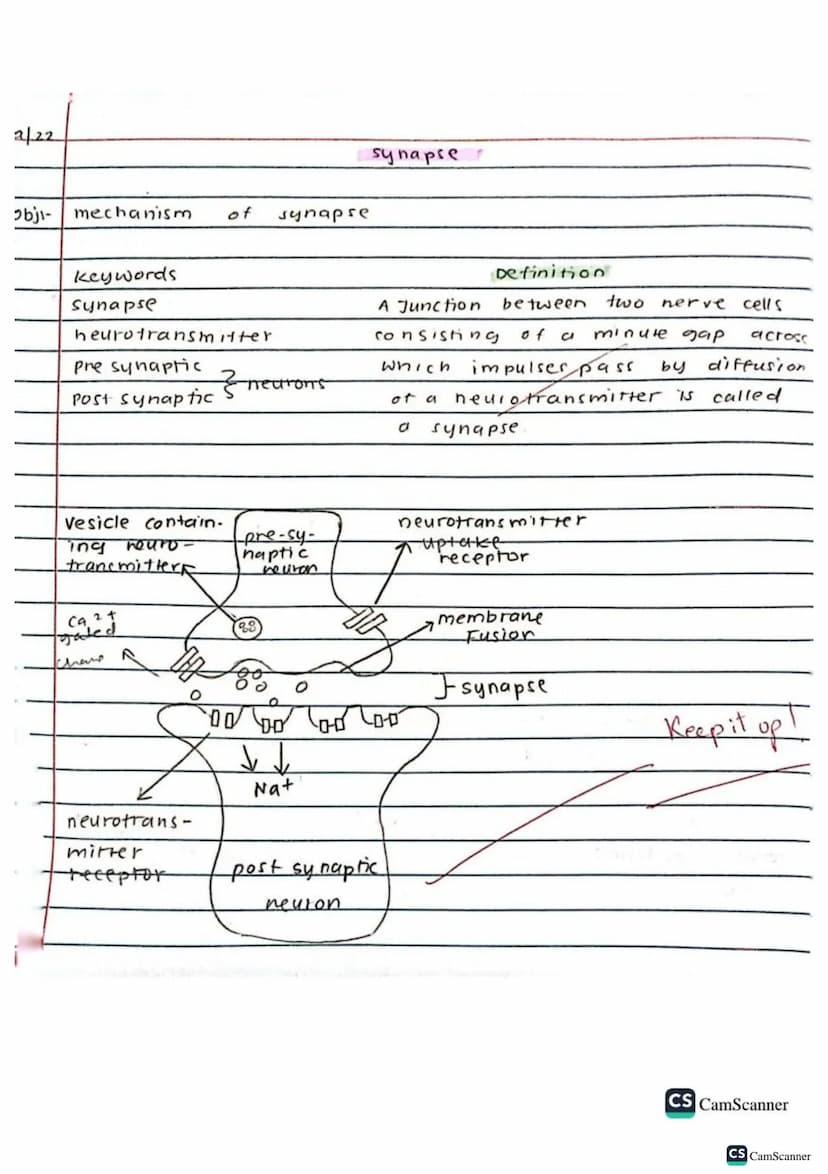 2/22
synapse
Obj1- mechanism of synapse
Keywords
Definition
synapse
A Junction between two nerve cells
neurotransmitter
consisting of a minute gap across
Pre synaptic
which impulses pass by diffusion
Post synaptic } neurons
of a neurotransmitter is called
a synapse.
vesicle contain-
ing neuro-
trancmitter
pre-sy-
naptic
neuron
neurotransmitter
uptake
receptor
Ca2+
gated
membrane
Fusion
synapse
Keep it up!
Na+
neurotrans-
mitter
receptor
post synaptic
neuron
CS CamScanner
CS CamScanner